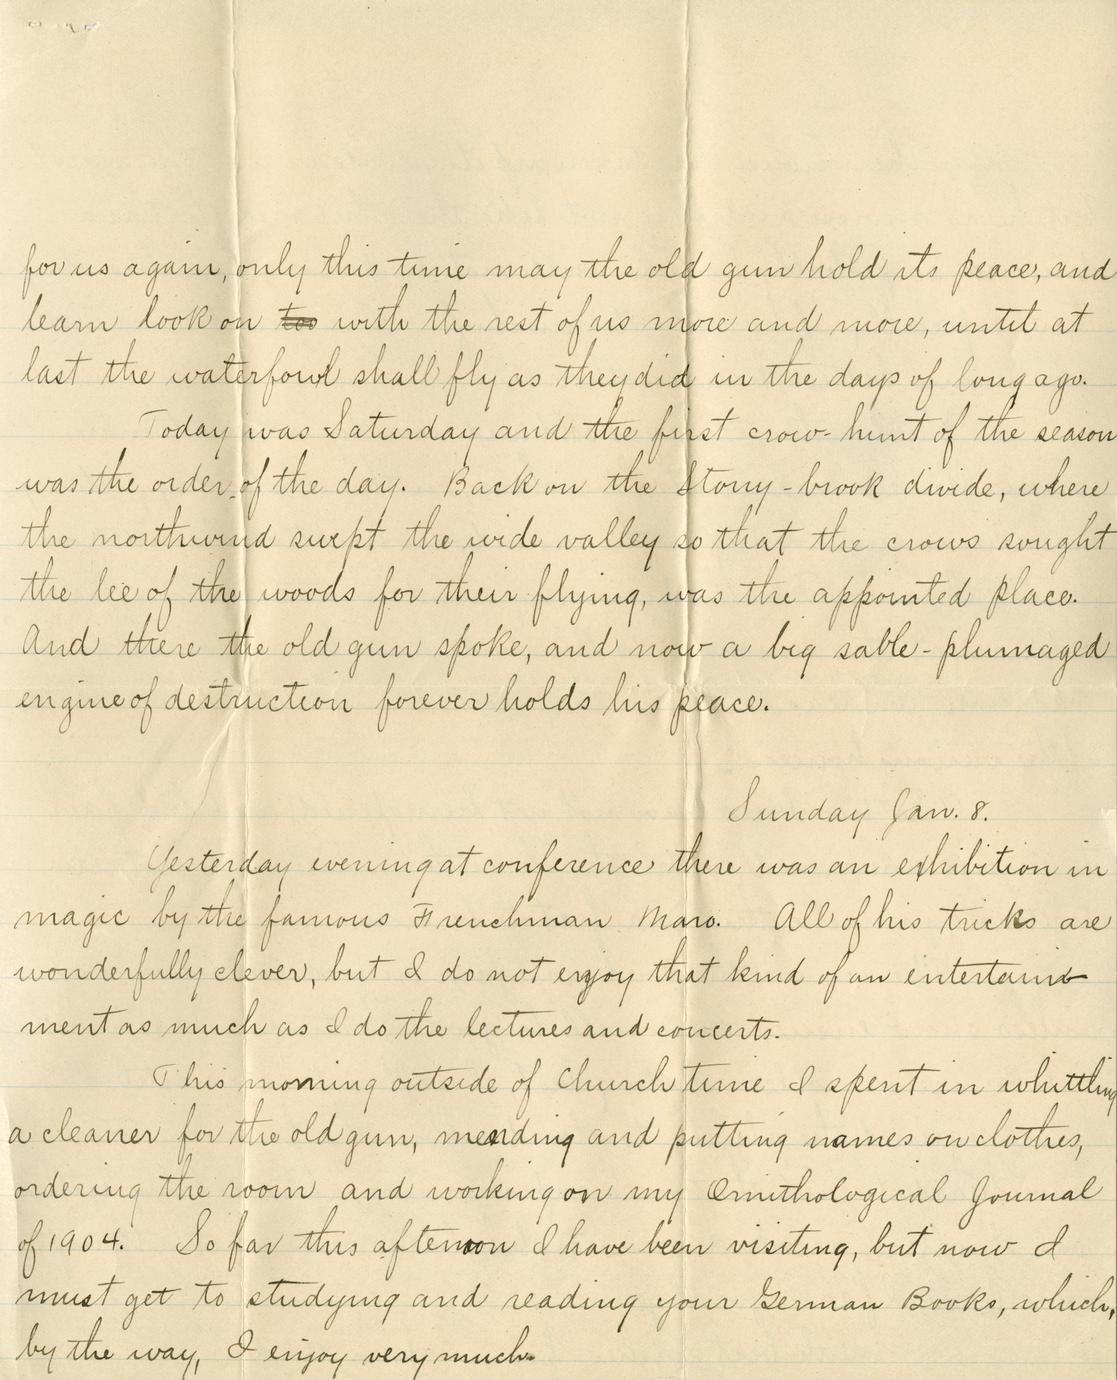 for us again, only this time may the old gun hold its peace, and
learn look on too with the rest of us more and more, until at
last the waterfowl shall fly as they did in the days of long ago.
Today was Saturday and the first crow-hunt of the season
was the order of the day. Back on the Stony-brook divide, where
the northwind swept the wide valley so that the crows sought
the lee of the woods for their flying, was the appointed place.
And there the old gun spoke, and now a big sable-plumaged
engine of destruction forever holds his peace.
Sunday Jan. 8.
Yesterday evening at conference there was an exhibition in
magic by the famous Frenchman Maro. All of his tricks are
wonderfully clever, but I do not enjoy that kind of an entertain-
ment as much as I do the lectures and concerts.
This morning outside of Church time I spent in whittling
a cleaner for the old gun, mending and putting names on clothes,
ordering the room and working on my Ornithological Journal
of 1904. So far this afternoon I have been visiting, but now I
must get to studying and reading your German Books, which,
by the way, I enjoy very much.